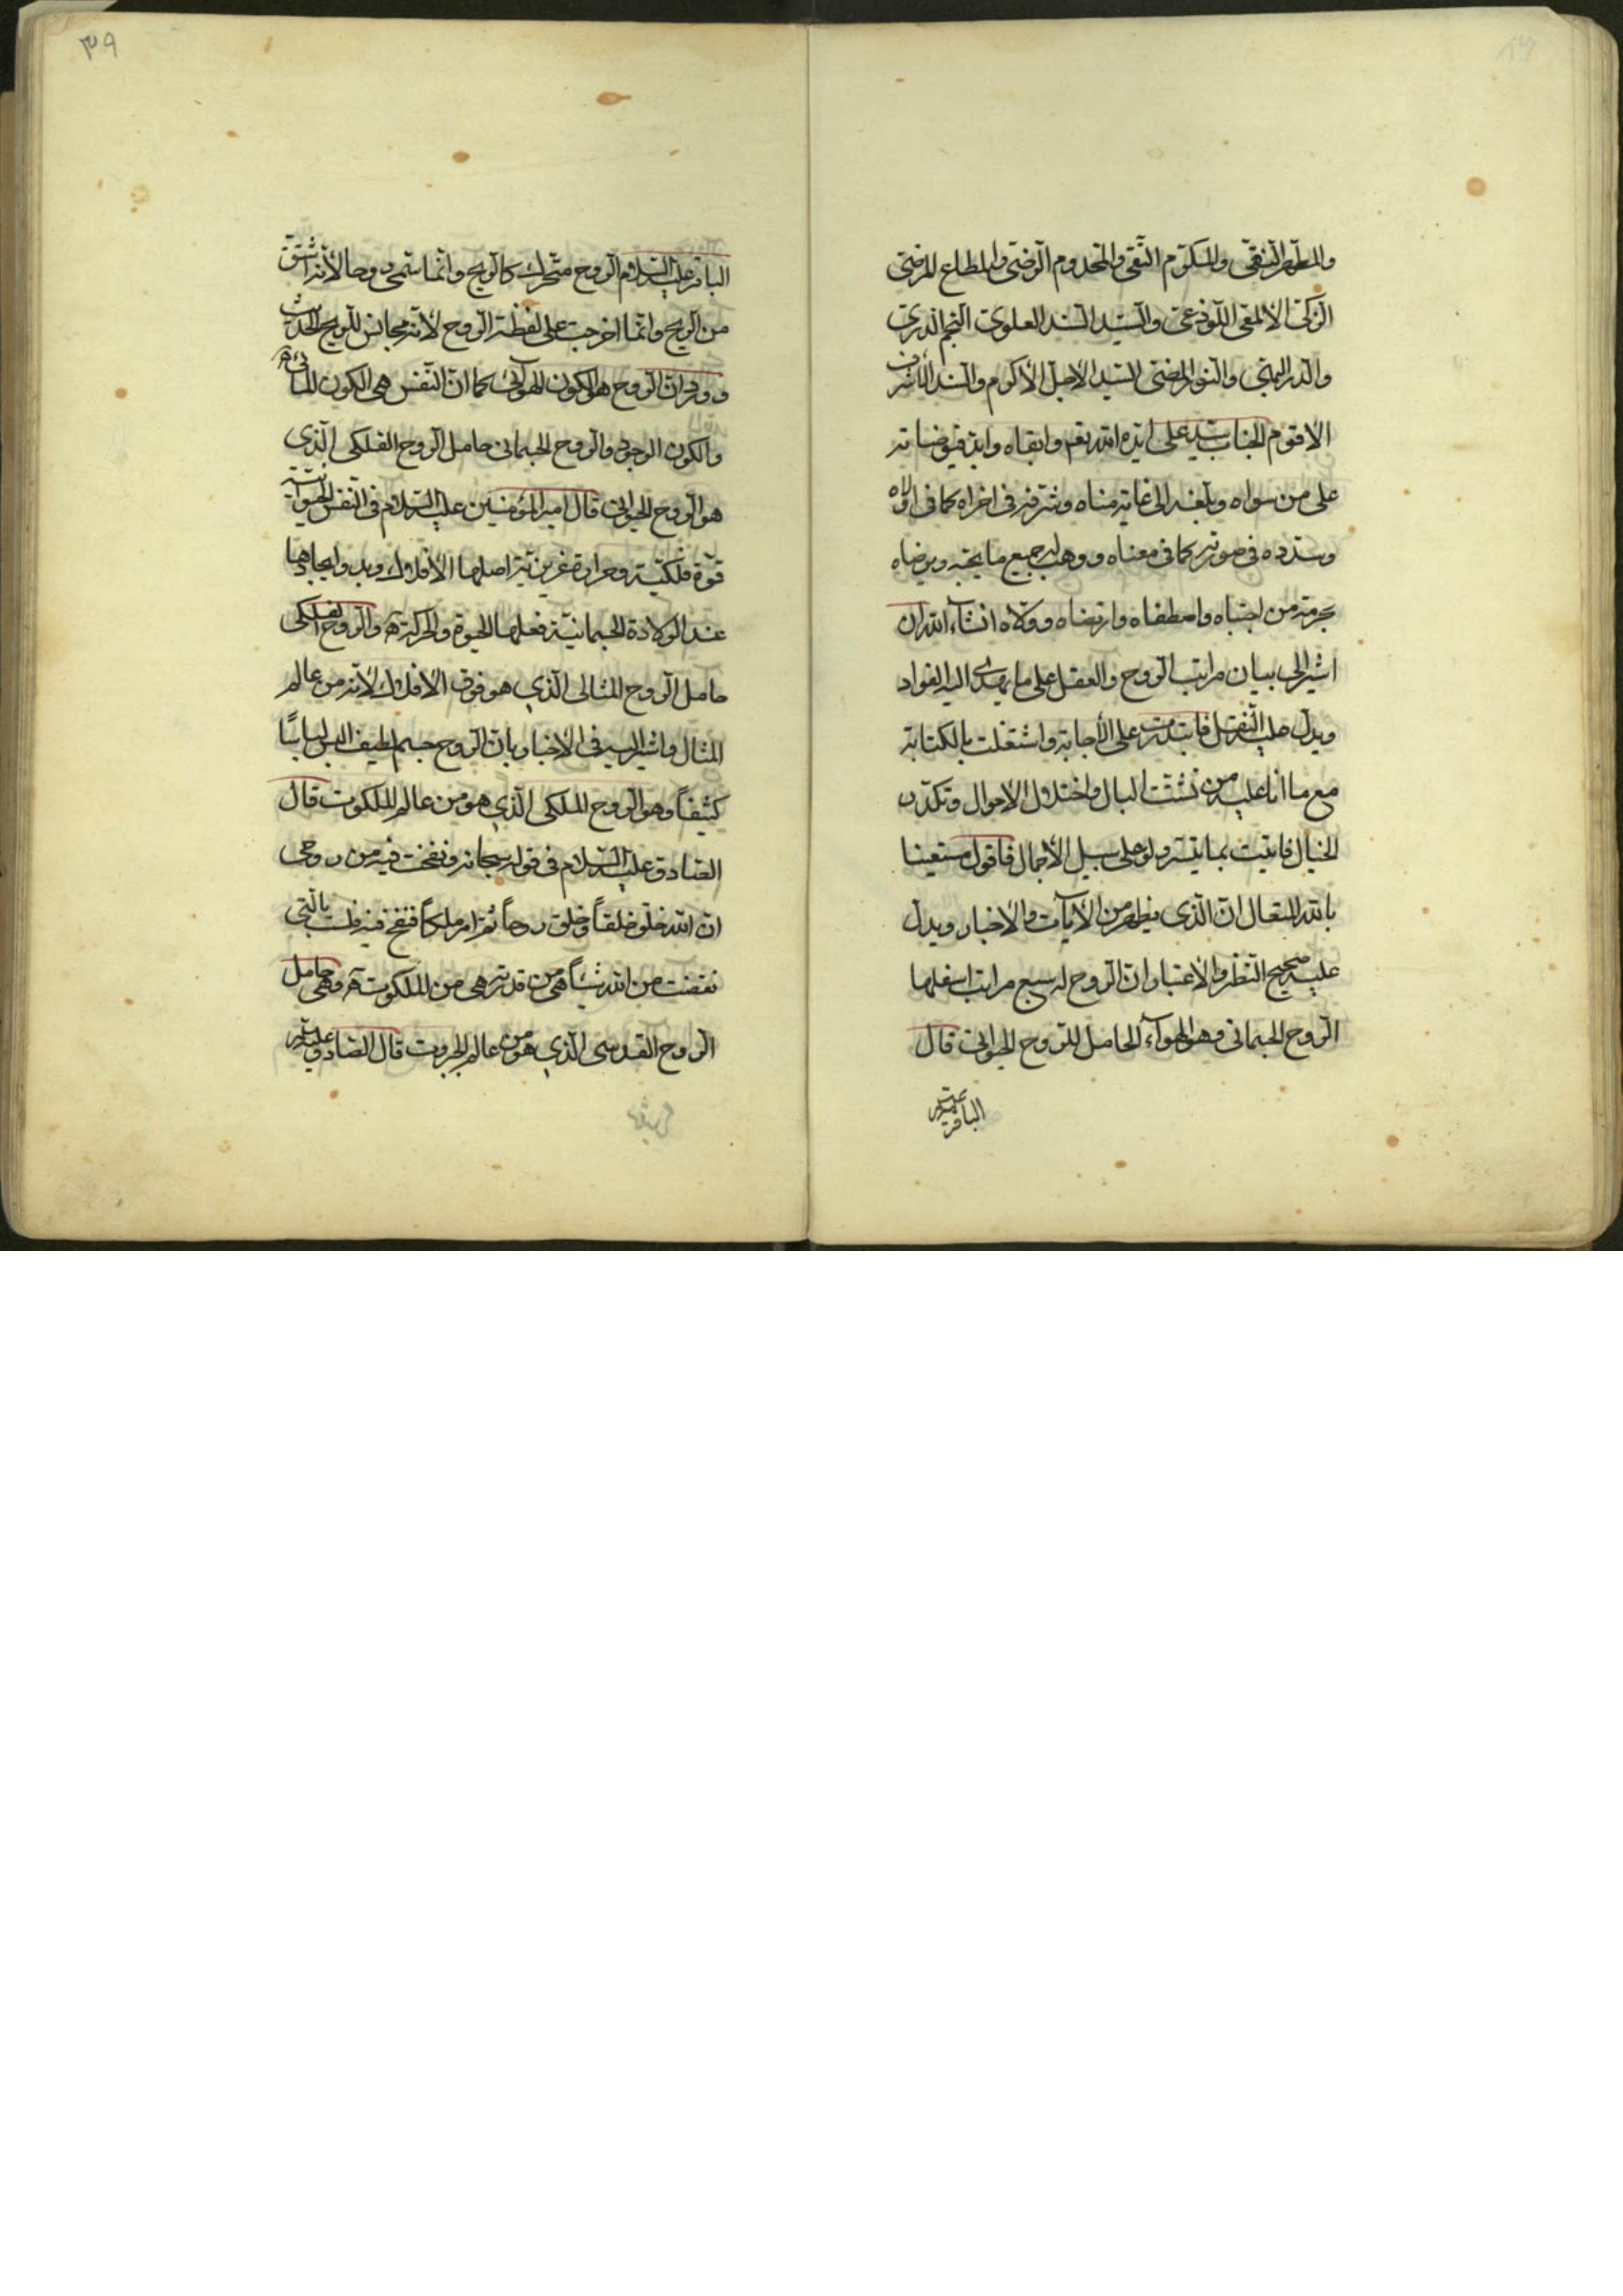 والمطهر النقي والمكرم التقي والمخدوم الرضي والمطاع المرضي
الزكي الالمعي اللوذعي والسيد السند العلوي النجم الدري
والدر البهي والنور المضئ السيد الاجل الأكرم والسند الاشرف
الاقوم الجناب سيد علي ايده الله تع وابقاه وايد فيوضاته
على من سواه وبلغه الى غاية مناه وشرفه في اخراه كما في اولاه
وسدده في صورته كما في معناه ووهب له جميع ما يحبه ويرضاه
بحرمة من اجتباه واصطفاه وارتضاه وولاه انشاء الله ان
اشير الى بيان مراتب الروح والعقل على ما يهدي اليه الفواد
ويدل عليه النقل فابتدرت على الأجابة واشتغلت بالكتابة
مع ما انا عليه من تشتت البال واختلال الاحوال وتكدر
الخيال فاتيت بما تيسر ولو على سبيل الأجمال فاقول مستعينا
بالله المتعال ان الذي يظهر من الأيات والأخبار ويدل
عليه صحيح النظر والاعتبار ان الروح له سبع مراتب اسفلها
الروح الجسماني وهو الهواء الحامل للروح الحيواني قال
الباقر عليه السلام
٣٩
الباقر عليه السلام الروح متحرك كالريح وانما سمي روحا لأنه اشتق
من الريح وانما اخرجت على لفظة الروح لأنه مجانس للريح الحديث
وورد ان الروح هو الكون الهوائي كما ان النفس هي الكون المائي
والكون الوجودي والروح الجسماني حامل الروح الفلكي الذي
هو الروح الحيواني قال امير المؤمنين عليه السلام في النفس الحيوانية
قوة فلكية وحرارة غريزية اصلها الأفلاك وبدو ايجادها
عند الولادة الجسمانية فعلها الحيوة والحركة والروح الفلكي
حامل الروح المثالي الذي هو فوق الأفلاك لأنه من عالم
المثال واشير اليه في الاخبار بان الروح جسم لطيف البس لباسًا
كثيفاً وهو الروح الملكي الذي هو من عالم الملكوت قال
الصادق عليه السلام في قوله سبحانه ونفخت فيه من روحي
ان الله خلق خلقاً وخلق روحاً ثم امر ملكاً فنفخ فيه ليست بالتي
نقصت من الله شيئاً هي من قدرته هي من الملكوت وهي حامل
الروح القدسي الذي هو من عالم الجبروت قال الصادق عليه السلام